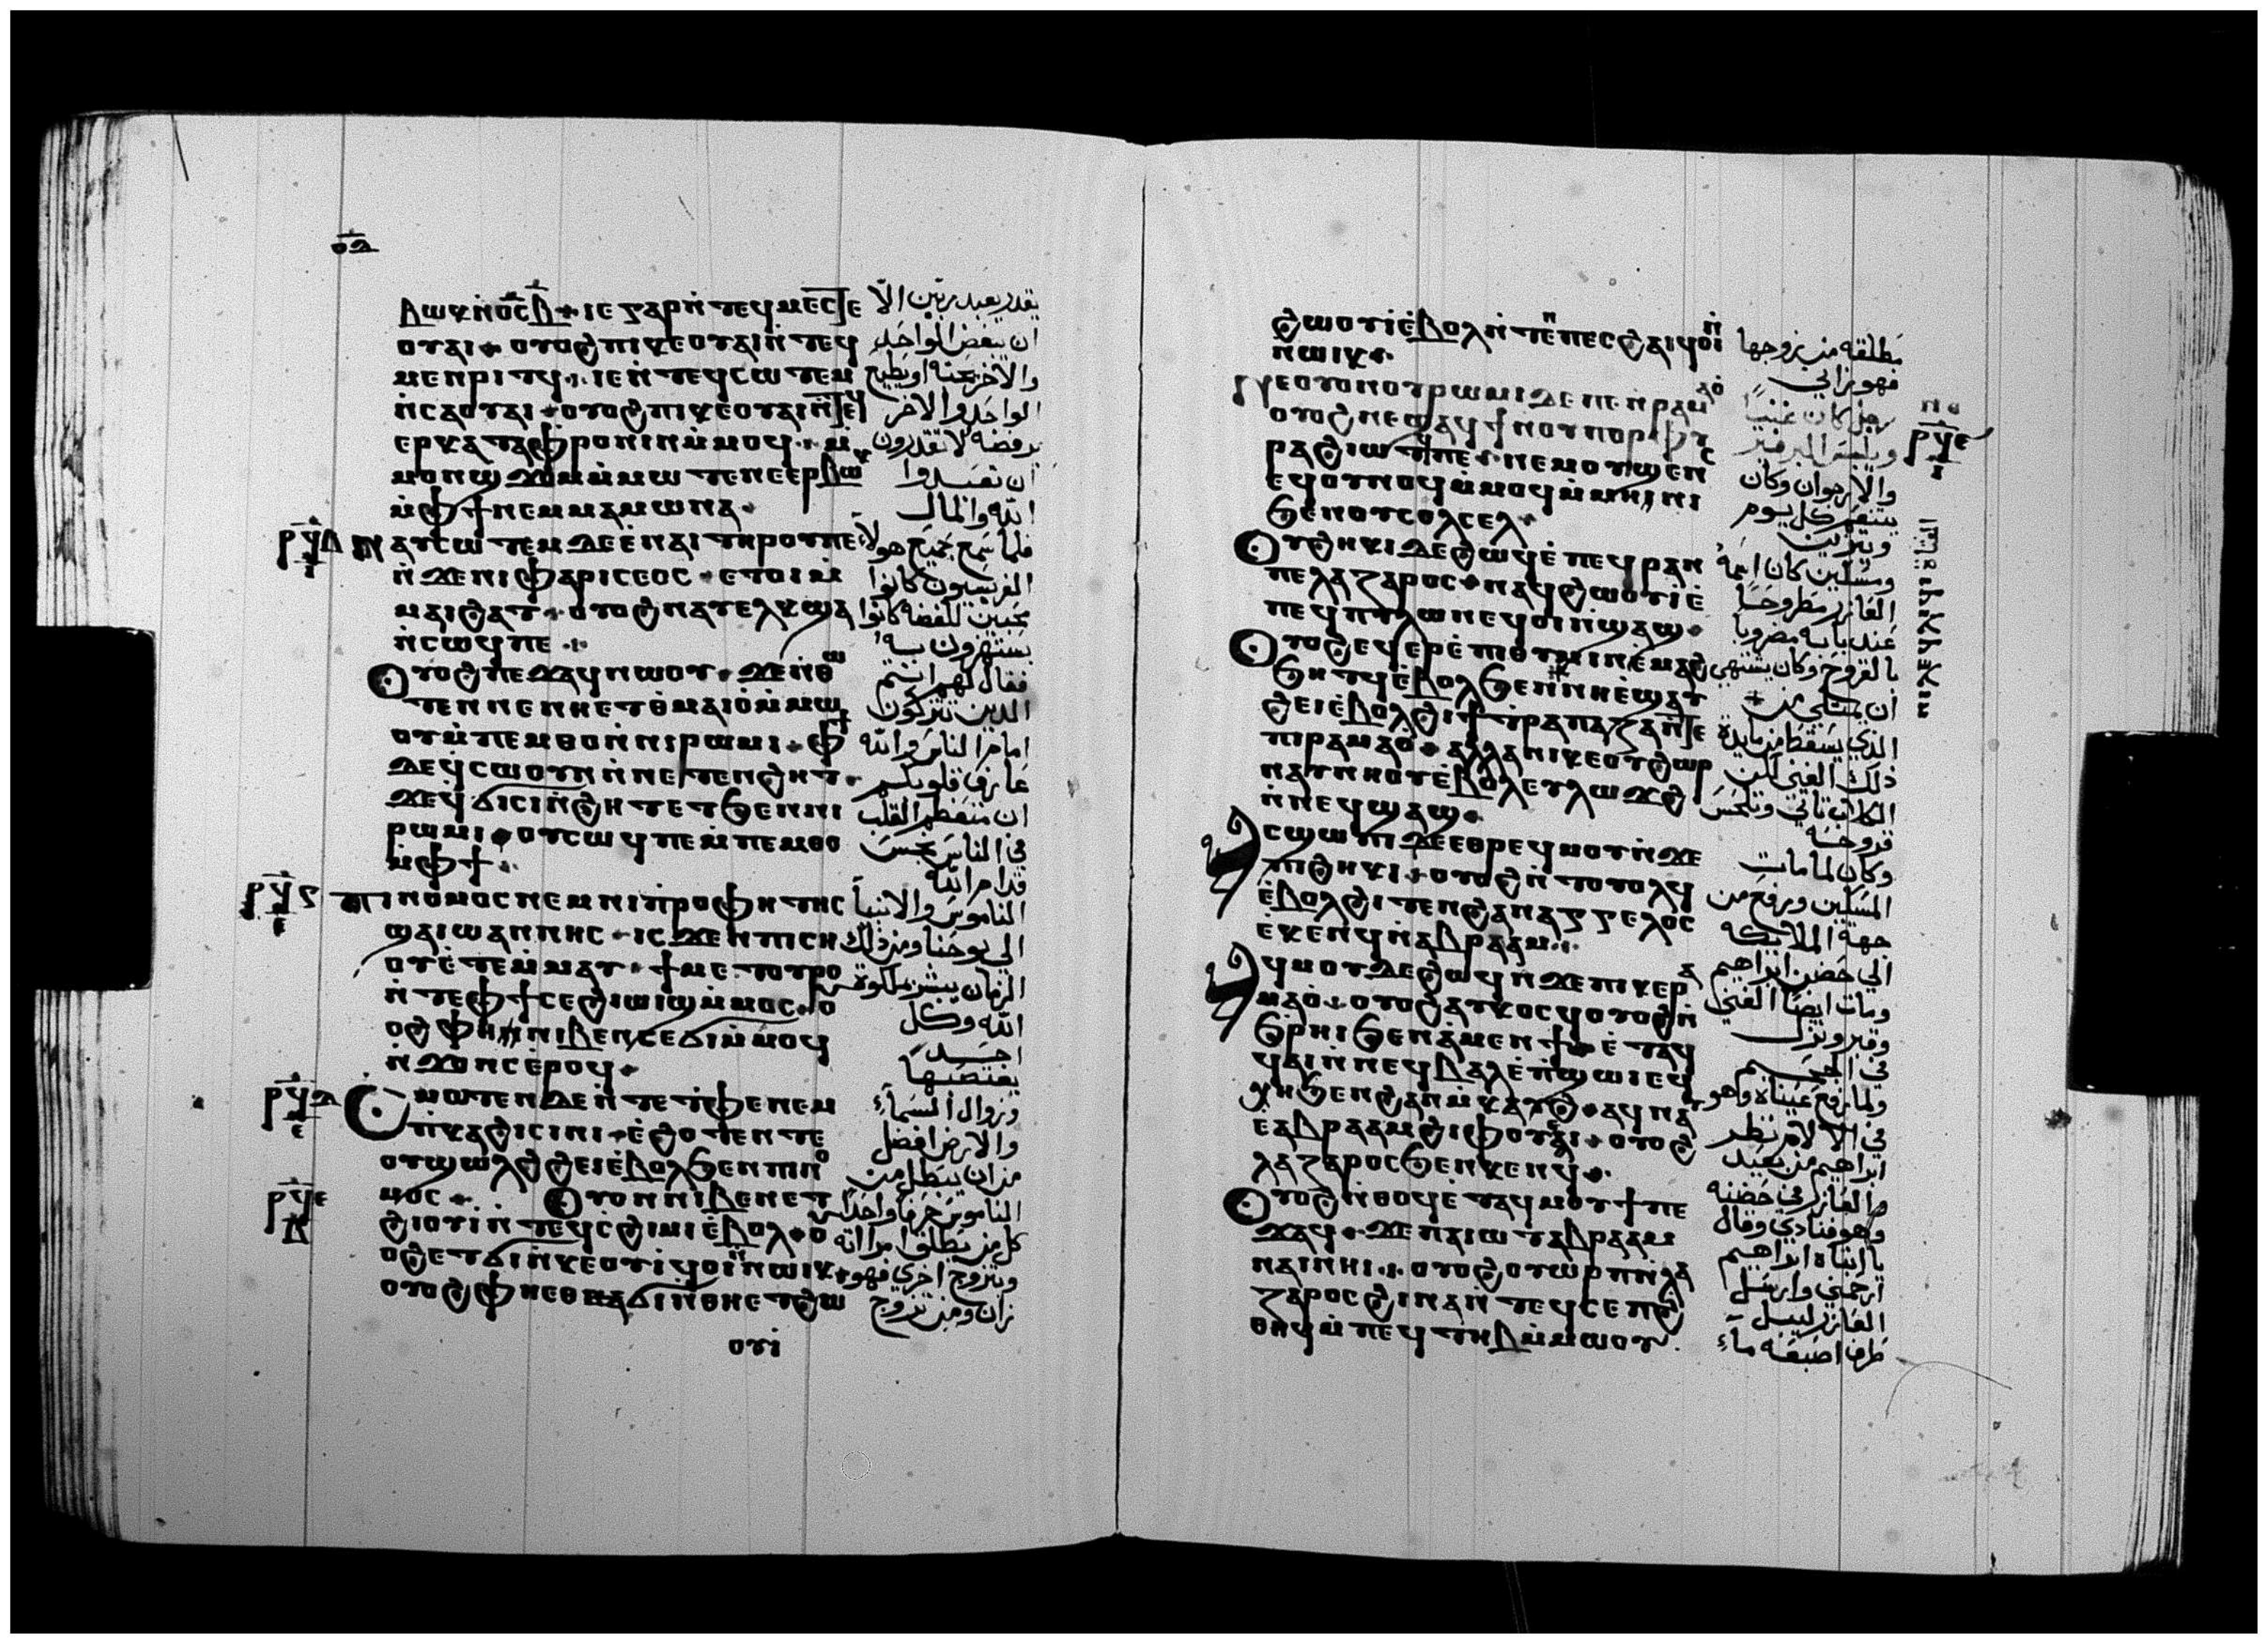 ⲟⲇ
ⲃⲱⲕ ⲛ̇ⲟ̅ⲥ̅ ⲃ̅ · ⲓⲉ ⲅⲁⲣ ⲛ̇ⲧⲉϥⲙⲉⲥⲧⲉ
ⲟⲩⲁⲓ · ⲟⲩⲟϩ ⲡⲓⲕⲉⲟⲩⲁⲓ ⲛ̇ⲧⲉϥ
ⲙⲉⲛⲣⲓⲧϥ · ⲓⲉ ⲛ̇ⲧⲉϥⲥⲱⲧⲉⲙ
ⲛ̇ⲥⲁ ⲟⲩⲁⲓ · ⲟⲩⲟϩ ⲡⲓⲕⲉⲟⲩⲁⲓ ⲛ̇ⲧⲉϥ
ⲉⲣⲕⲁⲧⲁⲫⲣⲟⲛⲓⲛ ⲙ̇ⲙⲟϥ · ⲙ̇
ⲙⲟⲛ ϣϫⲟⲙ ⲙ̇ⲙⲱⲧⲉⲛ ⲉⲉⲣⲃⲱⲕ
ⲙ̇ⲫϯ ⲛⲉⲙ ⲙⲁⲙⲱⲛⲁ ·
ⲣϥⲇ ⲛⲁⲩⲥⲱⲧⲉⲙ ⲇⲉ ⲉ̇ⲛⲁⲓ ⲧⲏⲣⲟⲩ ⲡⲉ
ⲛ̇ϫⲉ ⲛⲓⲫⲁⲣⲓⲥⲉⲟⲥ · ⲉⲧⲟⲓ ⲙ̇
ⲙⲁⲓϩⲁⲧ · ⲟⲩⲟϩ ⲛⲁⲩⲉⲗⲕϣⲁ
ⲛ̇ⲥⲱϥ ⲡⲉ ·
ⲟⲩⲟϩ ⲡⲉϫⲁϥ ⲛⲱⲟⲩ · ϫⲉ ⲛ̇ⲑⲱ
ⲧⲉⲛ ⲡⲉ ⲛⲏⲉⲧⲑⲙⲁⲓⲟ̇ ⲙ̇ⲙⲱ
ⲟⲩ ⲙ̇ⲡⲉⲙⲑⲟ ⲛ̇ⲛⲓⲣⲱⲙⲓ · ⲫϯ
ⲇⲉ ϥⲥⲱⲟⲩⲛ ⲛ̇ⲛⲉⲧⲉⲛϩⲏⲧ ·
ϫⲉ ϥϭⲓⲥⲓ ⲛ̇ϩⲏⲧ ⲉⲧϧⲉⲛ ⲛⲓ
ⲣⲱⲙⲓ · ⲟⲩⲥⲱϥ ⲡⲉ ⲙ̇ⲡⲉⲙⲑⲟ
ⲙ̇ⲫϯ ·
ⲡⲓⲛⲟⲙⲟⲥ ⲛⲉⲙ ⲛⲓⲡⲣⲟⲫⲏⲧⲏⲥ
ϣⲁ ⲓⲱⲁⲛⲛⲏⲥ · ⲓⲥϫⲉⲛ ⲡⲓⲥⲏ
ⲟⲩ ⲉ̇ⲧⲉⲙ̇ⲙⲁⲩ · ϯⲙⲉⲧⲟⲩⲣⲟ
ⲛ̇ⲧⲉ ⲫϯ ⲥⲉϩⲓⲱⲓϣ ⲙ̇ⲙⲟⲥ · ⲟ
ⲟϩ ⲫⲏ ⲛⲓⲃⲉⲛ ⲥⲉϭⲓ ⲙ̇ⲙⲟϥ
ⲛ̇ϫⲟⲛⲥ ⲉ̇ⲣⲟϥ ·
ⲥⲙⲟⲧⲉⲛ ⲇⲉ ⲛ̇ⲧⲉ ⲧⲫⲉ ⲛⲉⲙ
ⲡ̇ⲕⲁϩⲓ ⲥⲓⲛⲓ · ⲉ̇ϩⲟⲧⲉ ⲛⲧⲉ
ⲟⲩϣⲱⲗϩ ϩⲉⲓ ⲉ̇ⲃⲟⲗϧⲉⲛ ⲡⲓⲛⲟ
ⲙⲟⲥ · ⲟⲩⲟⲛ ⲛⲓⲃⲉⲛ ⲉⲧ
ϩⲓⲟⲩⲓ ⲛ̇ⲧⲉϥⲥϩⲓⲙⲓ ⲉ̇ⲃⲟⲗ · ⲟ
ⲟϩ ⲉⲧϭⲓ ⲛ̇ⲕⲉⲟⲩⲓ ϥⲟⲓ ⲛ̇ⲛⲱⲓⲕ ·
ⲟⲩⲟϩ ⲫⲏ ⲉⲑⲛⲁϭⲓ ⲛ̇ⲑⲏ ⲉⲧϩⲱ
ⲟⲩⲓ
يقدر يعبد ربين الا
ان يبغض الواحد
والاخر يحبه او يطيع
الواحد والاخر
يرفضه لا تقدرون
ان تعبدوا
الله والمال
فلما سمع جميع هولا
الفريسيون كانوا
محبين للفضه كانوا
يستهزون به
فقال لهم انتم
الذين تتزكون
امام الناس والله
عارف قلوبكم
ان متعظم القلب
في الناس نجس
قدام الله
الناموس والانبيا
الي يوحنا ومن ذلك
الزمان يبشر بملكوت
الله وكل
احد
يغتصبها
وزوال السماء
والارض افضل
من ان يبطل من
الناموس حرفا واحدا
كل من يطلق امراته
ويتزوج اخري فهو
زان ومن تزوج
ϩⲱⲟⲩⲓ ⲉ̇ⲃⲟⲗ ⲛ̇ⲧⲉⲛ ⲡⲉⲥϩⲁⲓ ϥⲟⲓ ⲛ̇
ⲛⲱⲓⲕ ·
ⲛⲉ ⲟⲩⲟⲛ ⲟⲩⲣⲱⲙⲓ ⲇⲉ ⲡⲉ ⲛ̇ⲣⲁⲙⲁⲟ̇
ⲟⲩⲟϩ ⲛⲉϣⲁϥϯ ⲛⲟⲩⲡⲟⲣⲫⲩⲣ
ⲉϥⲟⲩⲛⲟϥ ⲙ̇ⲙⲟϥ ⲙ̇ⲙⲏⲛⲓ
ϧⲉⲛ ⲟⲩⲥⲟⲗⲥⲉⲗ ·
ⲟⲩϩⲏⲕⲓ ⲇⲉ ϩⲱϥ ⲉ̇ⲡⲉϥⲣⲁⲛ
ⲡⲉ ⲗⲁⲍⲁⲣⲟⲥ · ⲛⲁϥϩⲱⲟⲩⲓ ⲉ̇
ⲡⲉϥⲡⲩⲗⲱⲛ ⲉϥⲟⲓ ⲛ̇ϣⲁϣ ·
ϩⲉⲓ ⲉ̇ⲃⲟⲗϩⲓ ϯⲧⲣⲁⲡⲉⲍⲁ ⲛ̇ⲧⲉ
ⲡⲓⲣⲁⲙⲁⲟ̇ · ⲁⲗⲗⲁ ⲛⲓⲕⲉⲟⲩϩⲱⲣ
ⲛⲁⲩⲛⲏⲟⲩ ⲉ̇ⲃⲟⲗ ⲉⲩⲗⲱϫϩ
ⲛ̇ⲛⲉϥϣⲁϣ ·
ⲁⲥϣⲱⲡⲓ ⲇⲉ ⲉⲑⲣⲉϥⲙⲟⲩ ⲛ̇ϫⲉ
ⲡⲓϩⲏⲕⲓ · ⲟⲩⲟϩ ⲛ̇ⲧⲟⲩⲟⲗϥ
ⲉ̇ⲃⲟⲗϩⲓⲧⲉⲛ ϩⲁⲛⲁⲅⲅⲉⲗⲟⲥ
ⲉ̇ⲕⲉⲛϥ ⲛ̇ⲁⲃⲣⲁⲁⲙ ·
ⲁϥⲙⲟⲩ ⲇⲉ ϩⲱϥ ⲛ̇ϫⲉ ⲡⲓⲕⲉⲣⲁ
ⲙⲁⲟ̇ · ⲟⲩⲟϩ ⲁⲩⲕⲟⲥϥ ⲟⲩⲟϩ ⲛ̇
ϥⲁⲓ ⲛ̇ⲛⲉϥⲃⲁⲗ ⲉ̇ⲡ̇ϣⲱⲓ ⲉϥ
ⲭⲏ ϧⲉⲛ ϩⲁⲛⲙ̇ⲕⲁⲩϩ · ⲁϥⲛⲁⲩ
ⲉ̇ⲁⲃⲣⲁⲁⲙ ϩⲓⲫⲟⲩⲉⲓ · ⲟⲩⲟϩ
ⲗⲁⲍⲁⲣⲟⲥ ϧⲉⲛ ⲕⲉⲛϥ ·
ⲟⲩⲟϩ ⲛ̇ⲑⲟϥ ⲉ̇ⲧⲁϥⲙⲟⲩϯ ⲡⲉ
ϫⲁϥ · ϫⲉ ⲡⲁⲓⲱⲧ ⲁⲃⲣⲁⲁⲙ
ⲛⲁⲓ ⲛⲏⲓ · ⲟⲩⲟϩ ⲟⲩⲱⲣⲡ ⲛ̇ⲗⲁ
ⲍⲁⲣⲟⲥ ϩⲓⲛⲁ ⲛ̇ⲧⲉϥⲥⲉⲡ
ⲑⲏϥ ⲙ̇ⲡⲉϥⲧⲏⲃ ⲙ̇ⲙⲱⲟⲩ
مطلقه من زوجها
فهو زاني
رجل كان غنيا
والارجوان وكان
يتنعم كل يوم
ومسكين كان اسمه
العازر مطروحا
عند بابه مضروبا
بالقروح وكان يشتهي
الذي يسقط من مايدة
ذلك الغني لكن
الكلاب تاتي وتلحس
قروحه
وكان لما مات
المسكين ورفع من
جهة الملايكه
الي حضن ابراهيم
ومات ايضا الغني
وقبر ونزل
في الجحيم
ولما رفع عيناه وهو
في الالام نظر
ابراهيم من بعيد
والعازر في حضنه
وهو فنادي وقال
يا ابتاه ابراهيم
ارحمني وارسل
العازر ليبل
طرف اصبعه ماء